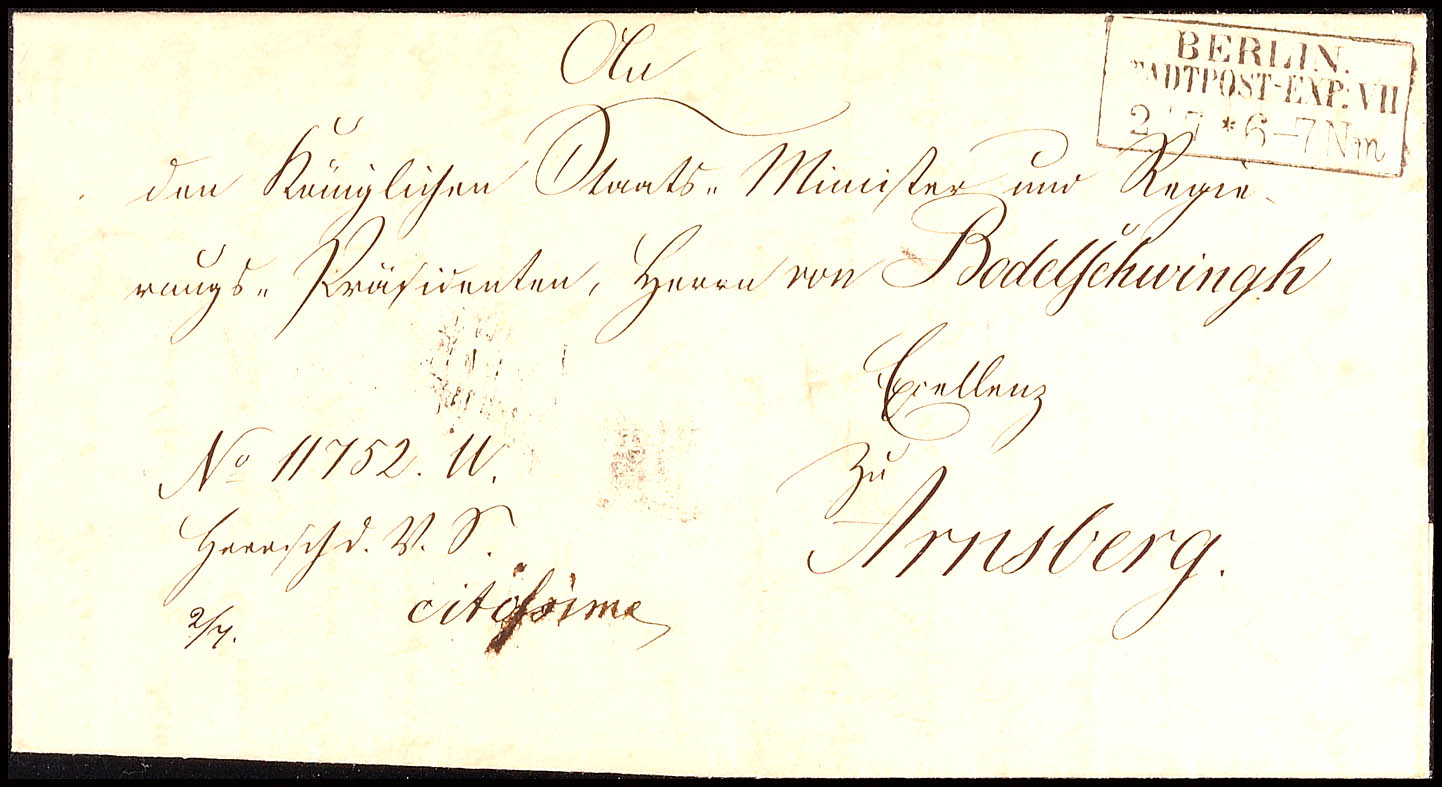 BERLIN.
STADTPOST-EXP: VII
2 7 * 6-7 Nm
An
den Königlichen Staats- Minister und Regie-
rungs- Präsidenten, Herrn von Bodelschwingh
Excellenz
zu
Arnsberg.
No 11752. U.
Herrsch d. V. S.
citissime
2/7.